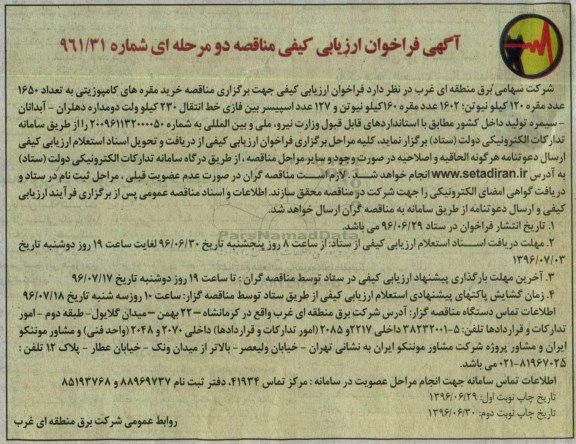 آگهی فراخوان ارزیابی کیفی مناقصه دو مرحله ای شماره ۹۶۱/۳۱
شرکت سهامی برق منطقه ای غرب در نظر دارد فراخوان ارزیابی کیفی جهت برگزاری مناقصه خرید مقره های کامپوزیتی به تعداد ۱۶۵۰
عدد مقره ۱۲۰ کیلو نیوتن؛ ۱۶۰۲ عدد مقره ۱۶۰کیلو نیوتن و ۱۲۷ عدد اسپیسر بین فازی خط انتقال ۲۳۰ کیلو ولت دومداره دهلران - آبدانان
- سیمره تولید داخل کشور مطابق با استانداردهای قابل قبول وزارت نیرو، ملی و بین المللی به شماره ۲۰۰۹۶۱۱۳۲۰۰۰۰۵۰ را از طریق سامانه
تدارکات الکترونیکی دولت (ستاد) برگزار نماید، کلیه مراحل برگزاری فراخوان ارزیابی کیفی از دریافت و تحویل اسناد استعلام ارزیابی کیفی
ارسال دعوتنامه هر گونه الحاقیه و اصلاحیه در صورت وجود و سایر مراحل مناقصه ، از طریق درگاه سامانه تدارکات الکترونیکی دولت (ستاد)
به آدرس www.setadiran.ir انجام خواهد شد. لازم است مناقصه گران در صورت عدم عضویت قبلی ، مراحل ثبت نام در ستاد و
دریافت گواهی امضای الکترونیکی را جهت شرکت در مناقصه محقق سازند. اطلاعات و اسناد مناقصه عمومی پس از برگزاری فرآیند ارزیابی
کیفی و ارسال دعوتنامه از طریق سامانه به مناقصه گران ارسال خواهد شد.
۱. تاریخ انتشار فراخوان در ستاد ۹۶/۰۶/۲۹ می باشد.
۲. مهلت دریافت اسناد استعلام ارزیابی کیفی از ستاد: از ساعت ۸ روز پنجشنبه تاریخ ۹۶/۰۶/۳۰ لغایت ساعت ۱۹ روز دوشنبه تاریخ
۱۳۹۶/۰۷/۰۳
۳. آخرین مهلت بارگذاری پیشنهاد ارزیابی کیفی در ستاد توسط مناقصه گران : تا ساعت ۱۹ روز دوشنبه تاریخ ۹۶/۰۷/۱۷
۴. زمان گشایش پاکتهای پیشنهادی استعلام ارزیابی کیفی از طریق ستاد توسط مناقصه گزار: ساعت ۱۰ روز سه شنبه تاریخ ۹۶/۰۷/۱۸
اطلاعات تماس دستگاه مناقصه گزار: آدرس شرکت برق منطقه ای غرب واقع در کرمانشاه - ۲۲ بهمن - میدان گلایول- طبقه دوم - امور
تدارکات و قراردادها تلفن: ۵-۳۸۲۳۲۰۰۱ داخلی ۲۲۱۷ و ۲۰۸۵ (امور تدارکات و قراردادها) داخلی ۲۰۷۰ و ۲۰۴۸ (واحد فنی) و مشاور موننکو
ایران و مشاور پروژه شرکت مشاور موننکو ایران به نشانی تهران - خیابان ولیعصر- بالاتر از میدان ونک - خیابان عطار - پلاک ۱۲ تلفن :
۰۲۱-۸۱۹۶۷۰۲۵ می باشد.
اطلاعات تماس سامانه جهت انجام مراحل عضویت در سامانه : مرکز تماس ۴۱۹۳۴، دفتر ثبت نام ۸۸۹۶۹۷۳۷ و ۸۵۱۹۳۷۶۸
تاریخ چاپ نوبت اول: ۱۳۹۶/۰۶/۲۹
تاریخ چاپ نوبت دوم: ۱۳۹۶/۰۶/۳۰
روابط عمومی شرکت برق منطقه ای غرب
ParsNamadData